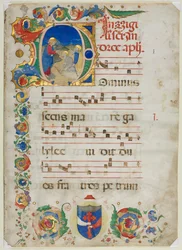 In uigi
lia an
dree apli
Dominus
secus ma re ga
lilee ui dit du
os fra tres petrum